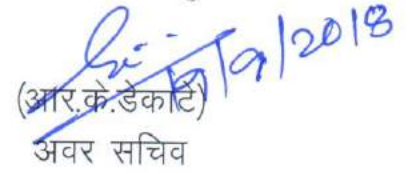 19/9/2018
(आर.के.डेकाटे)
अवर सचिव